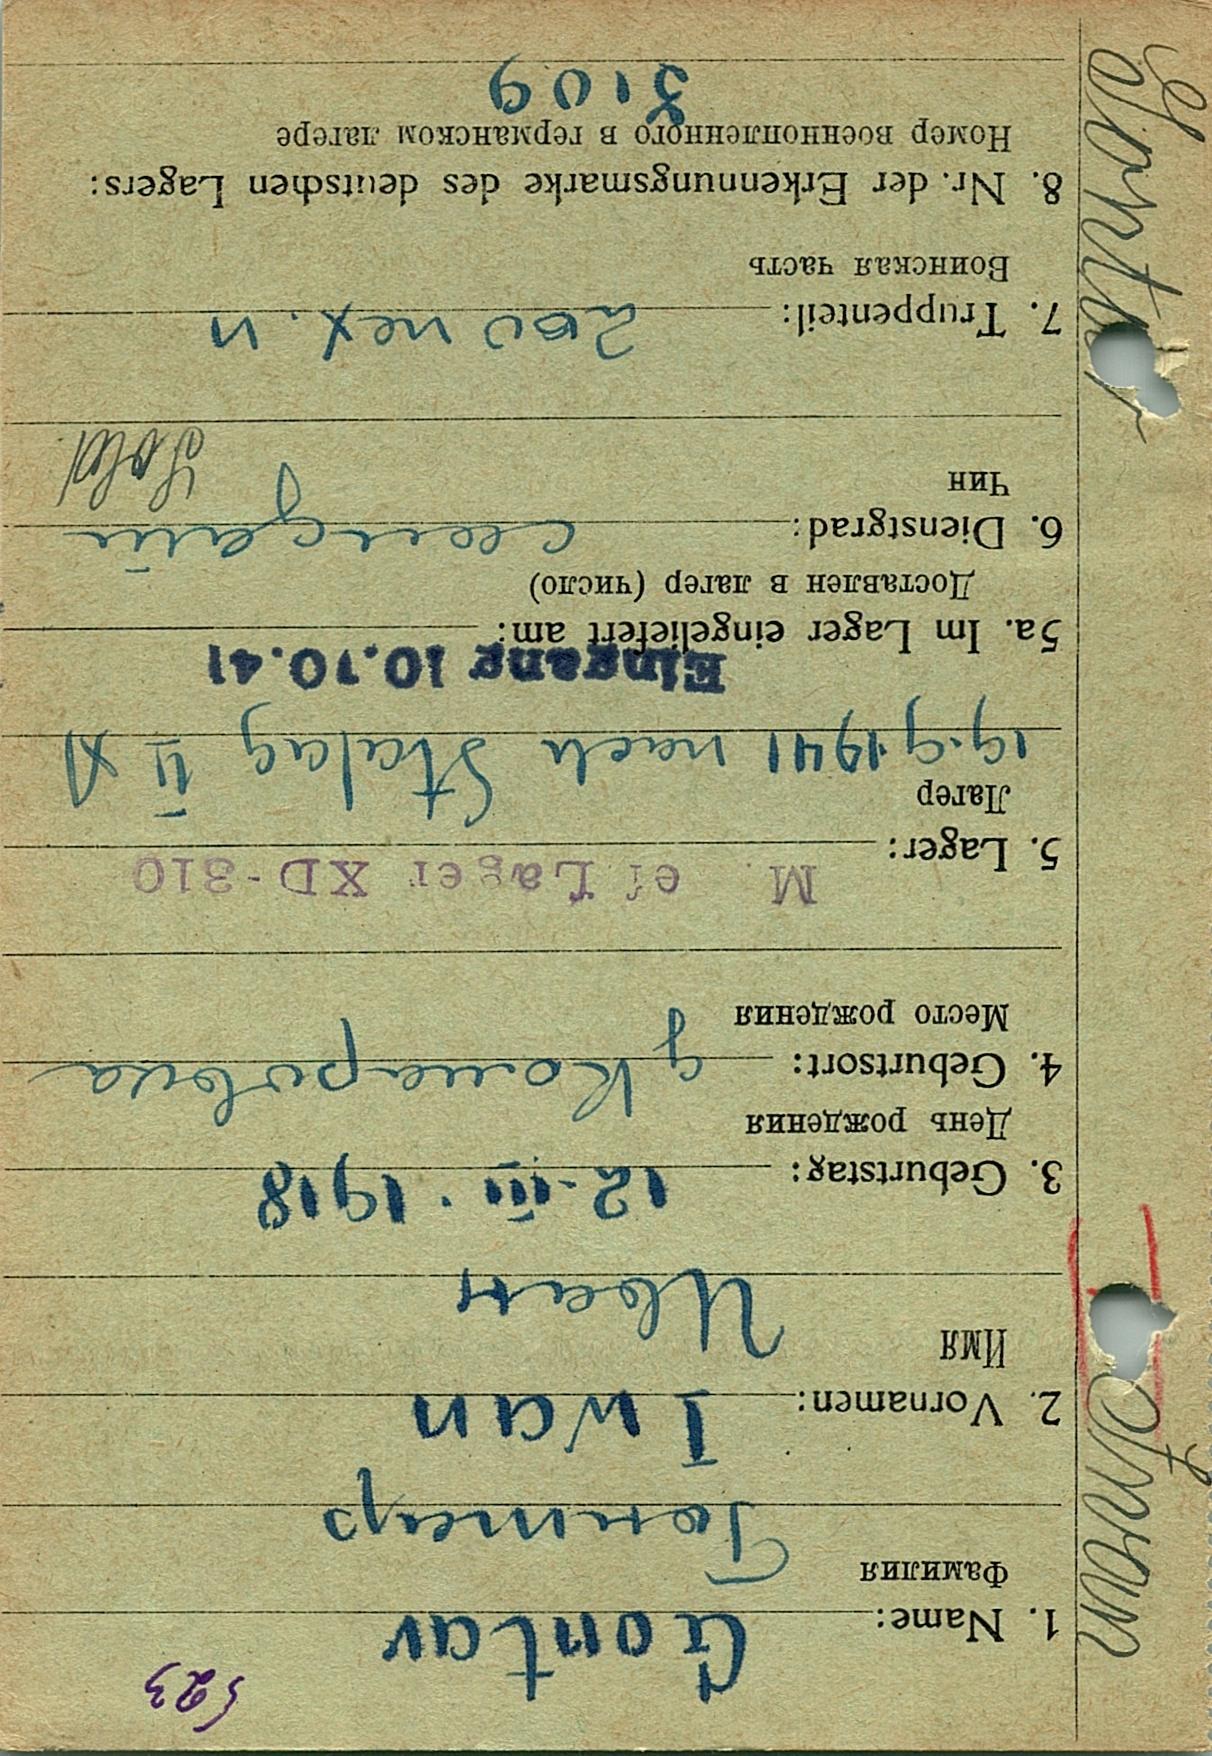 523
1. Name: Gontar
Фамилия
Гонтар
2. Vornamen: Iwan
Имя
Иван
3. Geburtstag: 12.III.1918
День рождения
4. Geburtsort:
Место рождения
5. Lager: M. ef Lager XD-310
Лагер
19.9.1941 nach Stalag II A
Eingang 10.10.41
5a. Im Lager eingeliefert am:
Доставлен в лагер (число)
6. Dienstgrad:
Чин
Sold
7. Truppenteil: 200
Воинская часть
8. Nr. der Erkennungsmarke des deutschen Lagers:
Номер военнопленного в германском лагере
Gontar
Iwan